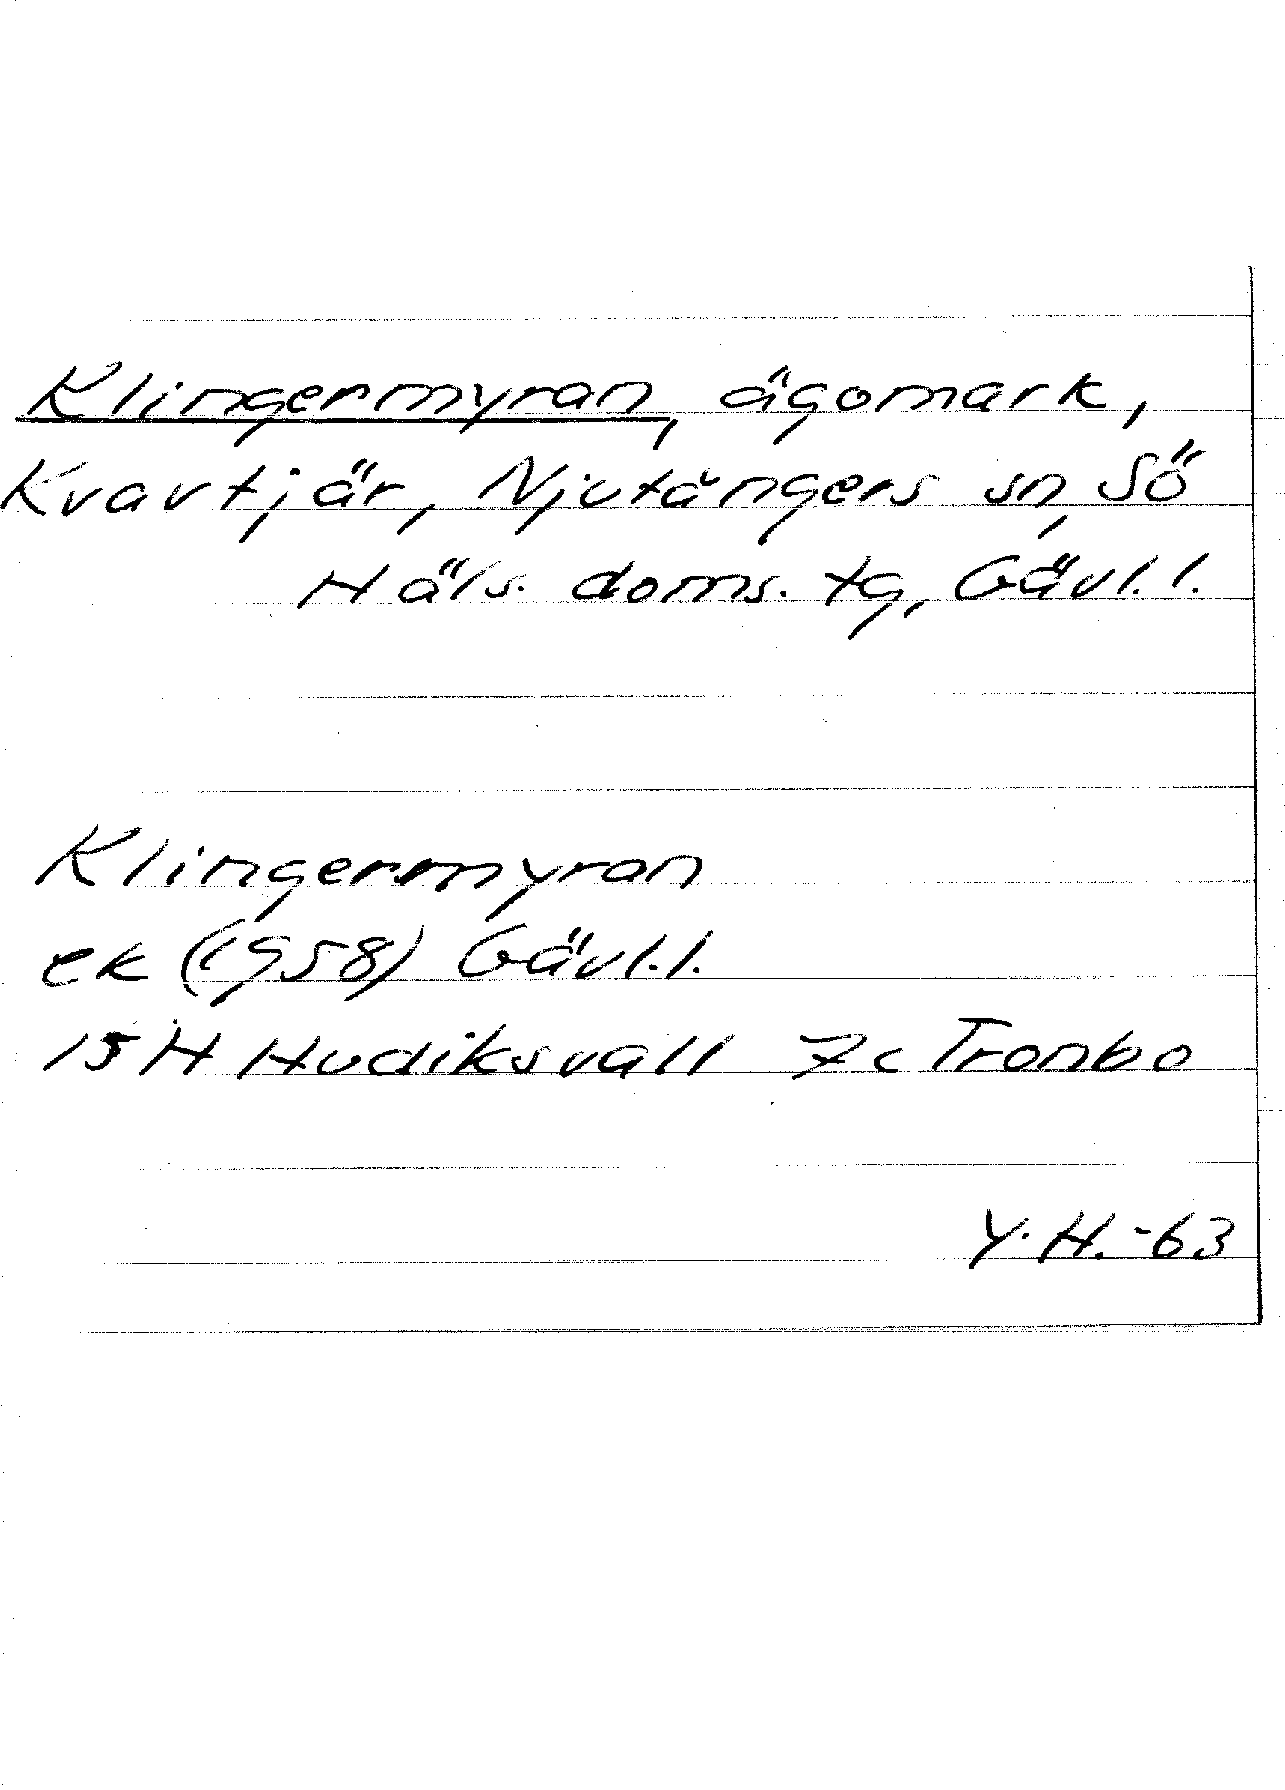 Klingermyran, ägomark,
Kvavtjär, Njutångers sn, Sö
Häls. doms. tg, Gävl. l.
Klingermyran
ek (1958) Gävl. l.
15 H Hudiksvall 7c Tronbo
Y. H. -63